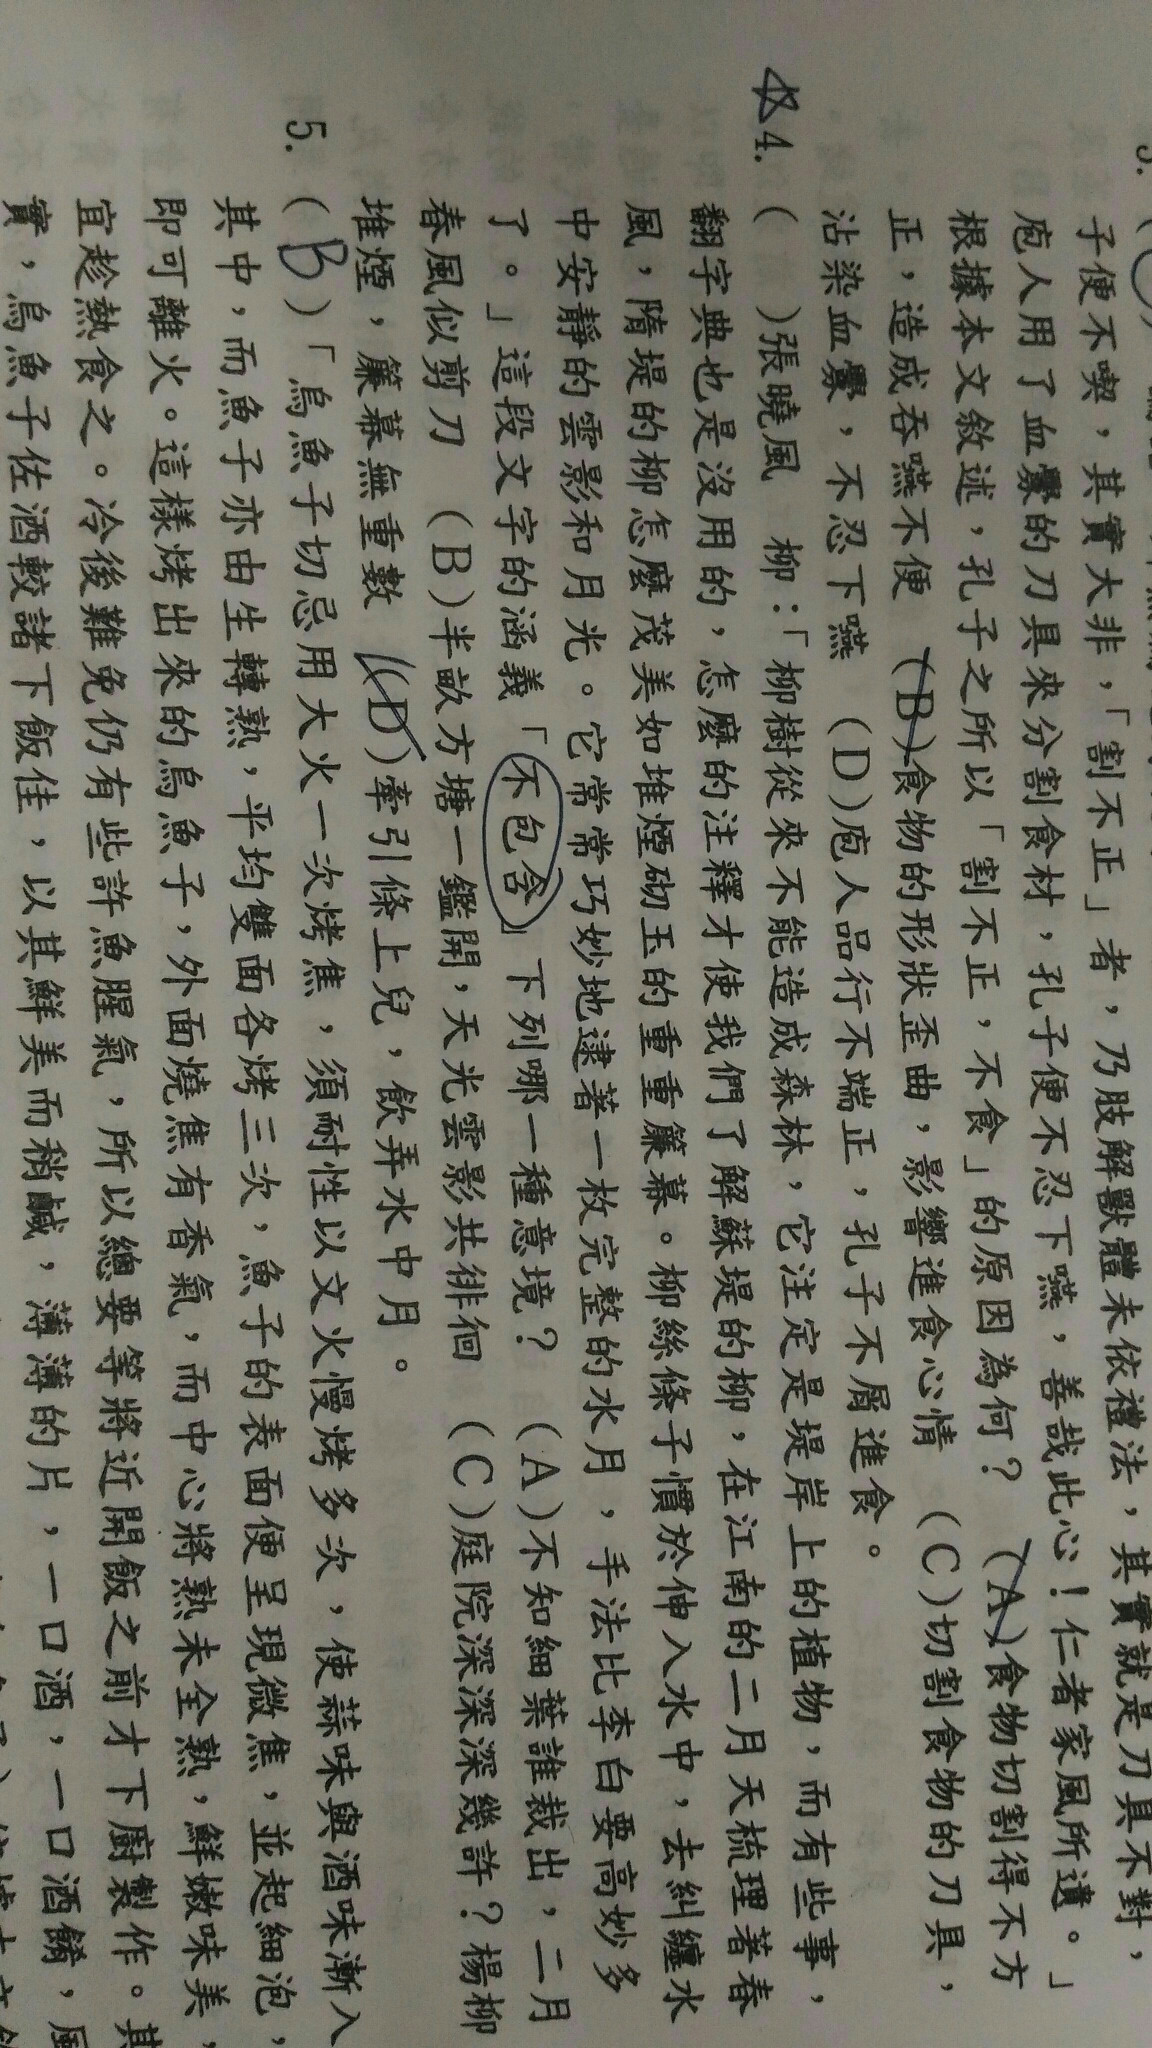 子便不喫，其實大非，「割不正」者，乃肢解獸體未依禮法，其實就是刀具不對，
庖人用了血釁的刀具來分割食材，孔子便不忍下嚥，善哉此心！仁者家風所遺。」
根據本文敘述，孔子之所以「割不正，不食」的原因為何？ (A)食物切割得不方
正，造成吞嚥不便 (B)食物的形狀歪曲，影響進食心情 (C)切割食物的刀具，
沾染血釁，不忍下嚥 (D)庖人品行不端正，孔子不屑進食。
4. ( )張曉風 柳：「柳樹從來不能造成森林，它注定是堤岸上的植物，而有些事，
翻字典也是沒用的，怎麼的注釋才使我們了解蘇堤的柳，在江南的二月天梳理著春
風，隋堤的柳怎麼茂美如堆煙砌玉的重重簾幕。柳絲條子慣於伸入水中，去糾纏水
中安靜的雲影和月光。它常常巧妙地逮著一枚完整的水月，手法比李白要高妙多
了。」這段文字的涵義「不包含」下列哪一種意境？ (A)不知細葉誰裁出，二月
春風似剪刀 (B)半畝方塘一鑑開，天光雲影共徘徊 (C)庭院深深深幾許？楊柳
堆煙，簾幕無重數 (D)牽引條上兒，飲弄水中月。
5. (B)「烏魚子切忌用大火一次烤焦，須耐性以文火慢烤多次，使蒜味與酒味漸入
其中，而魚子亦由生轉熟，平均雙面各烤三次，魚子的表面便呈現微焦，並起細泡，
即可離火。這樣烤出來的烏魚子，外面燒焦有香氣，而中心將熟未全熟，鮮嫩味美，
宜趁熱食之。冷後難免仍有些許魚腥氣，所以總要等將近開飯之前才下廚製作。其
實，烏魚子佐酒較諸下飯佳，以其鮮美而稍鹹，薄薄的片，一口酒，一口酒餚，風